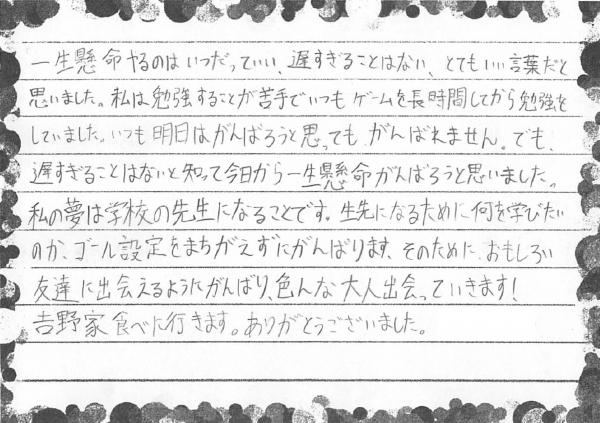 一生懸命やるのはいつだっていい、遅すぎることはない、とてもいい言葉だと
思いました。私は勉強することが苦手でいつもゲームを長時間してから勉強を
していました。いつも明日はがんばろうと思っても、がんばれません。でも、
遅すぎることはないと知って今日から一生懸命がんばろうと思いました。
私の夢は学校の先生になることです。生先になるために何を学びたい
のか、ゴール設定をまちがえずにがんばります。そのために、おもしろい
友達に出会えるようにがんばり、色んな大人出会っていきます!
吉野家食べに行きます。ありがとうございました。